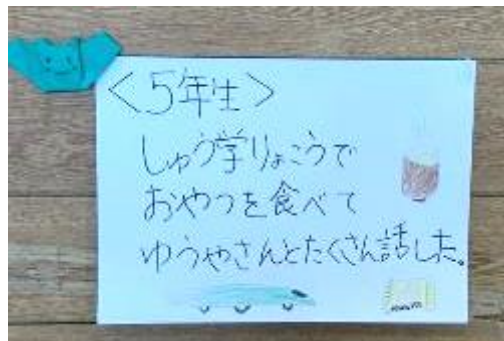 ＜5年生＞
しゅう学りょこうで
おやつを食べて
ゆうやさんとたくさん話した。